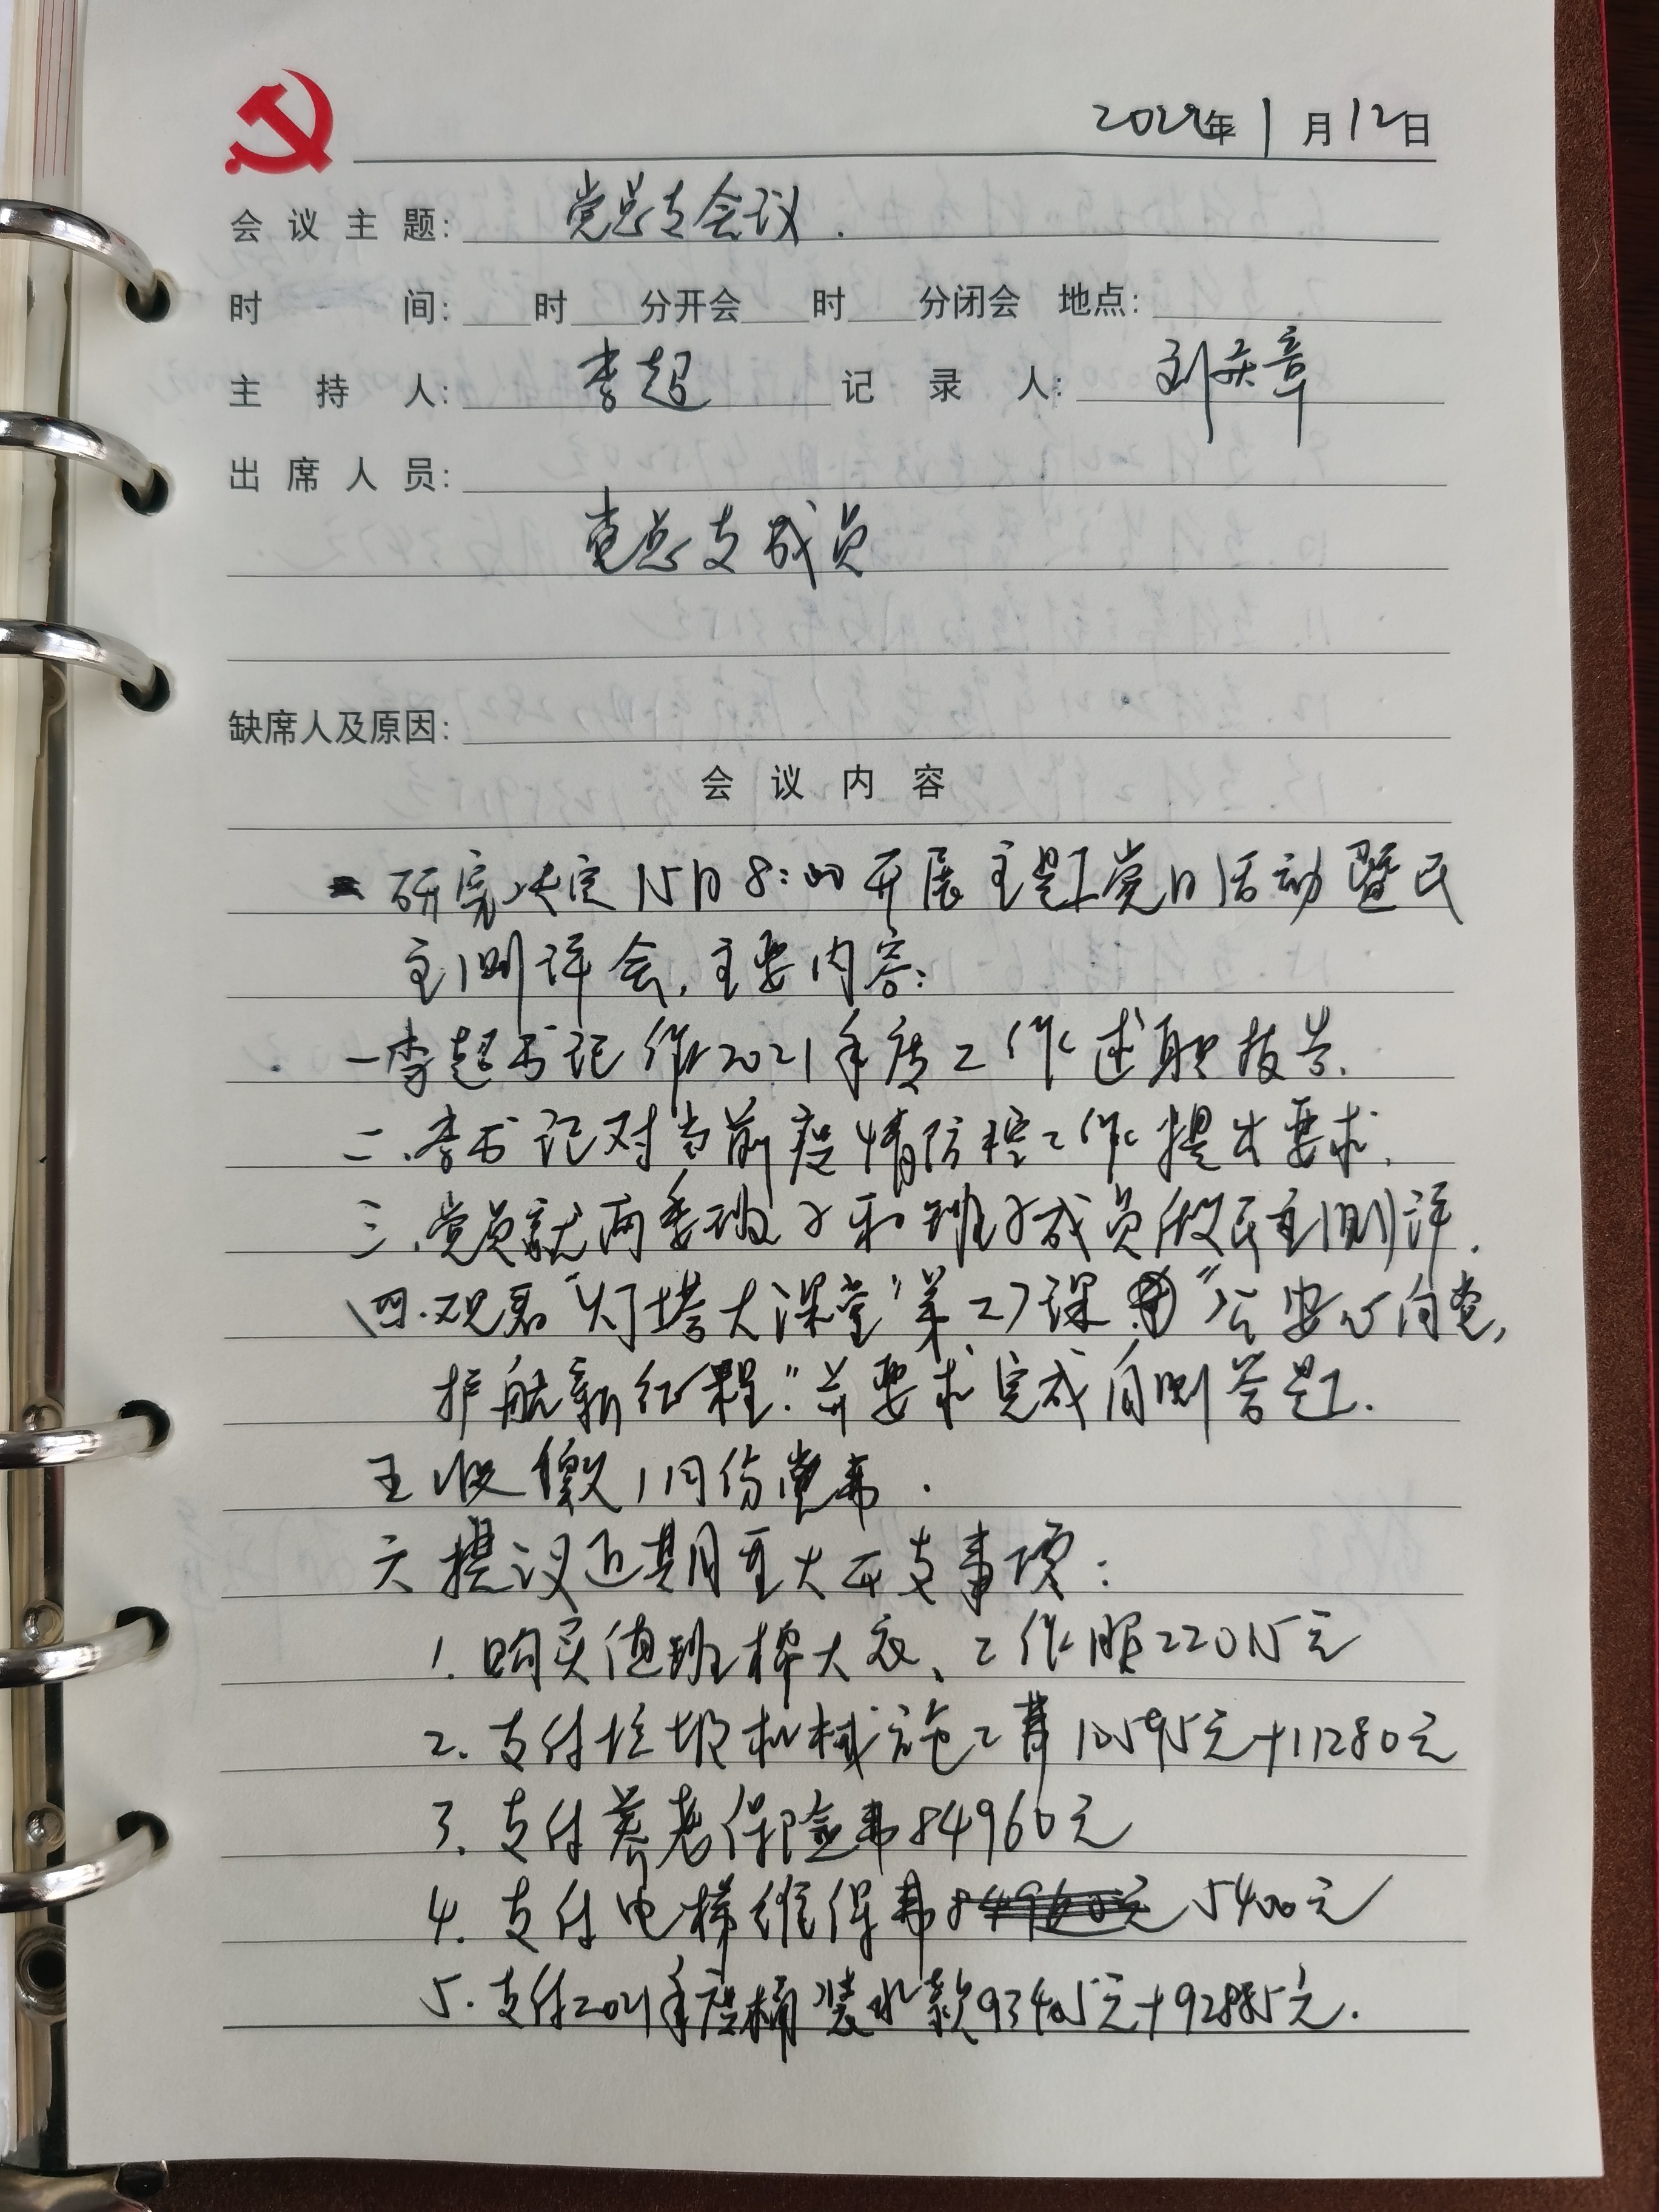 2022年1月12日
会议主题: 党总支会议.
时间: 时 分开会 时 分闭会 地点:
主持人: 李超 记录人: 刘庆章
出席人员:
党总支成员
缺席人及原因:
会议内容
研究决定15日8:00开展主题党日活动暨民
主测评会,主要内容:
一李超书记作2021年度工作述职报告.
二.李书记对当前疫情防控工作提出要求.
三.党员就两委班子和班子成员做民主测评.
四.观看“灯塔大课堂”第27课“公安心向党,
护航新征程.”并要求完成自测答题.
五收缴1月份党费.
六提议近期重大开支事项:
1.购买值班棉大衣、工作服22015元
2.支付垃圾机械施工费10595元+11280元
3.支付养老保险费84960元
4.支付电梯维保费 5400元
5.支付2021年度桶装水款